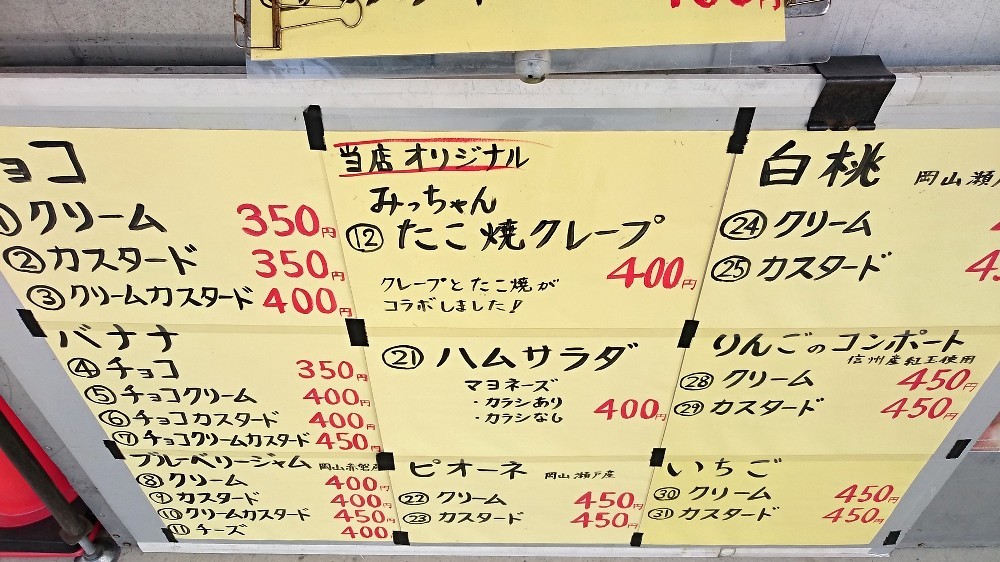 ョコ
①クリーム 350円
②カスタード 350円
③クリームカスタード 400円
バナナ
④チョコ 350円
⑤チョコクリーム 400円
⑥チョコカスタード 400円
⑦チョコクリームカスタード 450円
ブルーベリージャム 岡山赤磐産
⑧クリーム 400円
⑨カスタード 400円
⑩クリームカスタード 450円
⑪チーズ 400円
当店オリジナル
みっちゃん
⑫たこ焼クレープ
400円
クレープとたこ焼が
コラボしました!
㉑ハムサラダ
マヨネーズ
・カラシあり
・カラシなし
400円
ピオーネ 岡山瀬戸産
㉒クリーム 450円
㉓カスタード 450円
白桃 岡山瀬戸
㉔クリーム
㉕カスタード 45
りんごのコンポート
信州産紅玉使用
㉘クリーム 450円
㉙カスタード 450円
いちご
㉚クリーム 450円
㉛カスタード 450円